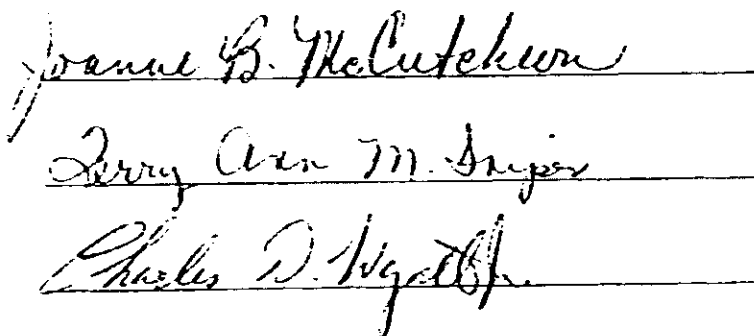 Joanne B. McCutcheon
Terry Ann M. Sniper
Charles D. Wyatt Jr.